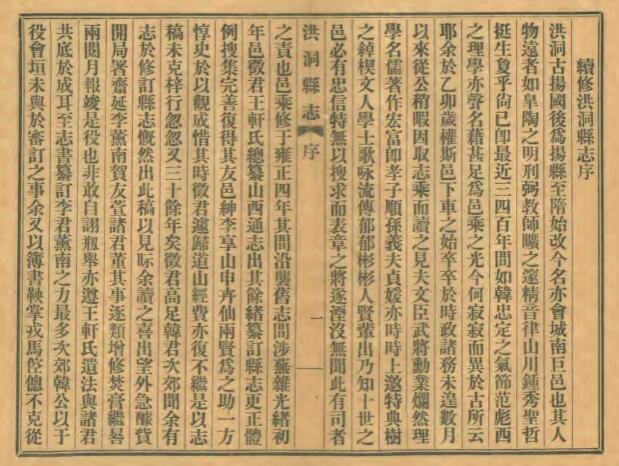 續修洪洞縣志序
洪洞古揚國後爲揚縣至隋始改今名亦會城南巨邑也其人
物遠者如臯陶之明刑弼教師曠之邃精音律山川鍾秀聖哲
挺生夐乎尙已卽最近三四百年間如韓忠定之氣節范彪西
之理學亦聲名藉甚足爲邑乘之光今何寂寂而異於古所云
耶余於乙卯歲權斯邑下車之始卒卒於時政諸務未遑數月
以來從公稍暇因取志乘而讀之見夫文臣武將勳業爛然理
學名儒著作宏富卽孝子順孫義夫貞媛亦時時上邀特典樹
之綽楔文人學士歌咏流傳郁郁彬彬人賢輩出乃知十世之
邑必有忠信特無以搜求而表章之將遂湮沒無聞此有司者
洪洞縣志 序 一
之責也邑乘修于雍正四年其間沿襲舊志間涉蕪雜光緒初
年邑徵君王軒氏總纂山西通志出其餘緒纂訂縣志更正體
例搜集完善復得其友邑紳李享山申卉仙兩賢爲之助一方
惇史於以觀成惜其時徵君遽歸道山經費亦復不繼是以志
稿未克梓行忽忽又三十餘年矣徵君高足韓君次郊聞余有
志於修訂縣志慨然出此稿以見眎余讀之喜出望外急釀貲
開局署齋延李薰南賀友萱諸君董其事逐類增修焚膏繼晷
兩閱月報竣是役也非敢自詡瓶舉亦遵王軒氏遺法與諸君
共底於成耳至志書纂訂李君薰南之力最多次郊韓公以于
役會垣未與於審訂之事余又以簿書鞅掌戎馬倥傯不克從